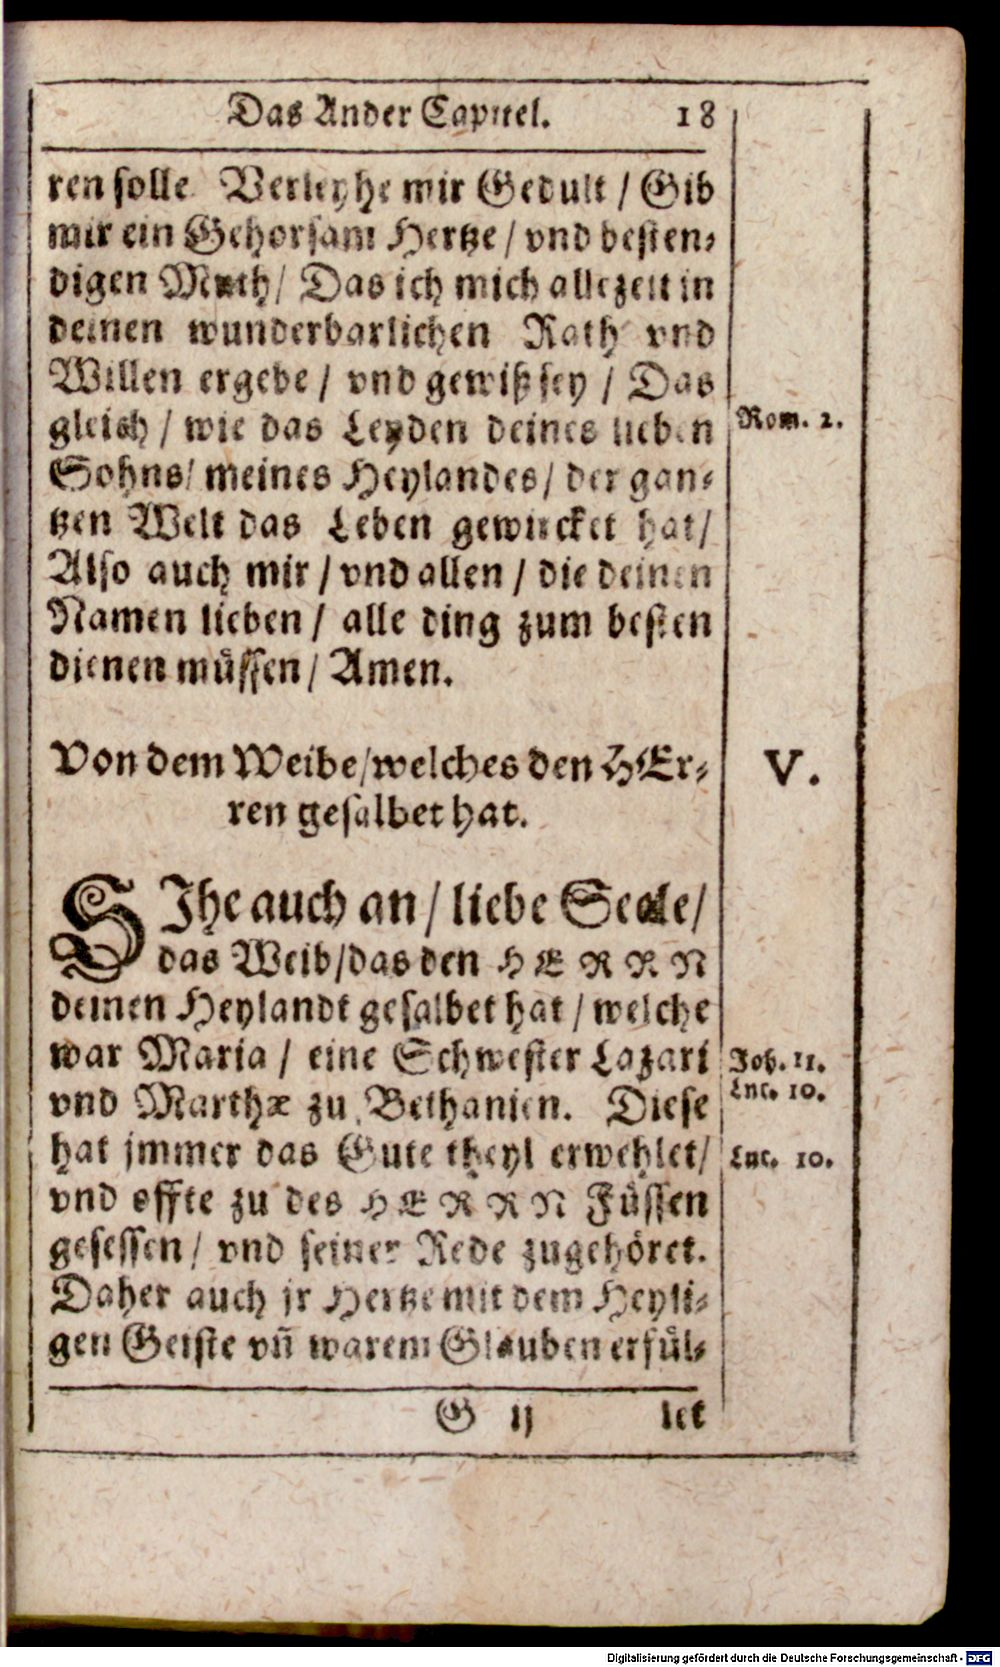 Das Ander Capittel. 18
ren solle Verleyhe mir Gedult / Gib
mir ein Gehorsam Hertze / vnd besten-
digen Muth / Das ich mich allezeit in
deinen wunderbarlichen Rath vnd
Willen ergebe / vnd gewiß sey / Das
gleich / wie das Leyden deines lieben
Rom. 2.
Sohns / meines Heylandes / der gan-
tzen Welt das Leben gewircket hat /
Also auch mir / vnd allen / die deinen
Namen lieben / alle ding zum besten
dienen müssen / Amen.
Von dem Weibe / welches den HEr-
V.
ren gesalbet hat.
SIhe auch an / liebe Seele /
das Weib / das den HERRN
deinen Heylandt gesalbet hat / welche
war Maria / eine Schwester Lazari
Joh. 11.
vnd Marthæ zu Bethanien. Diese
Luc. 10.
hat jmmer das Gute theyl erwehlet /
Luc. 10.
vnd offte zu des HERRN Füssen
gesessen / vnd seiner Rede zugehöret.
Daher auch jr Hertze mit dem Heyli-
gen Geiste vñ warem Glauben erfül-
G ij let
Digitalisierung gefördert durch die Deutsche Forschungsgemeinschaft - DFG